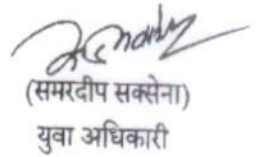 (समरदीप सक्सेना)
युवा अधिकारी